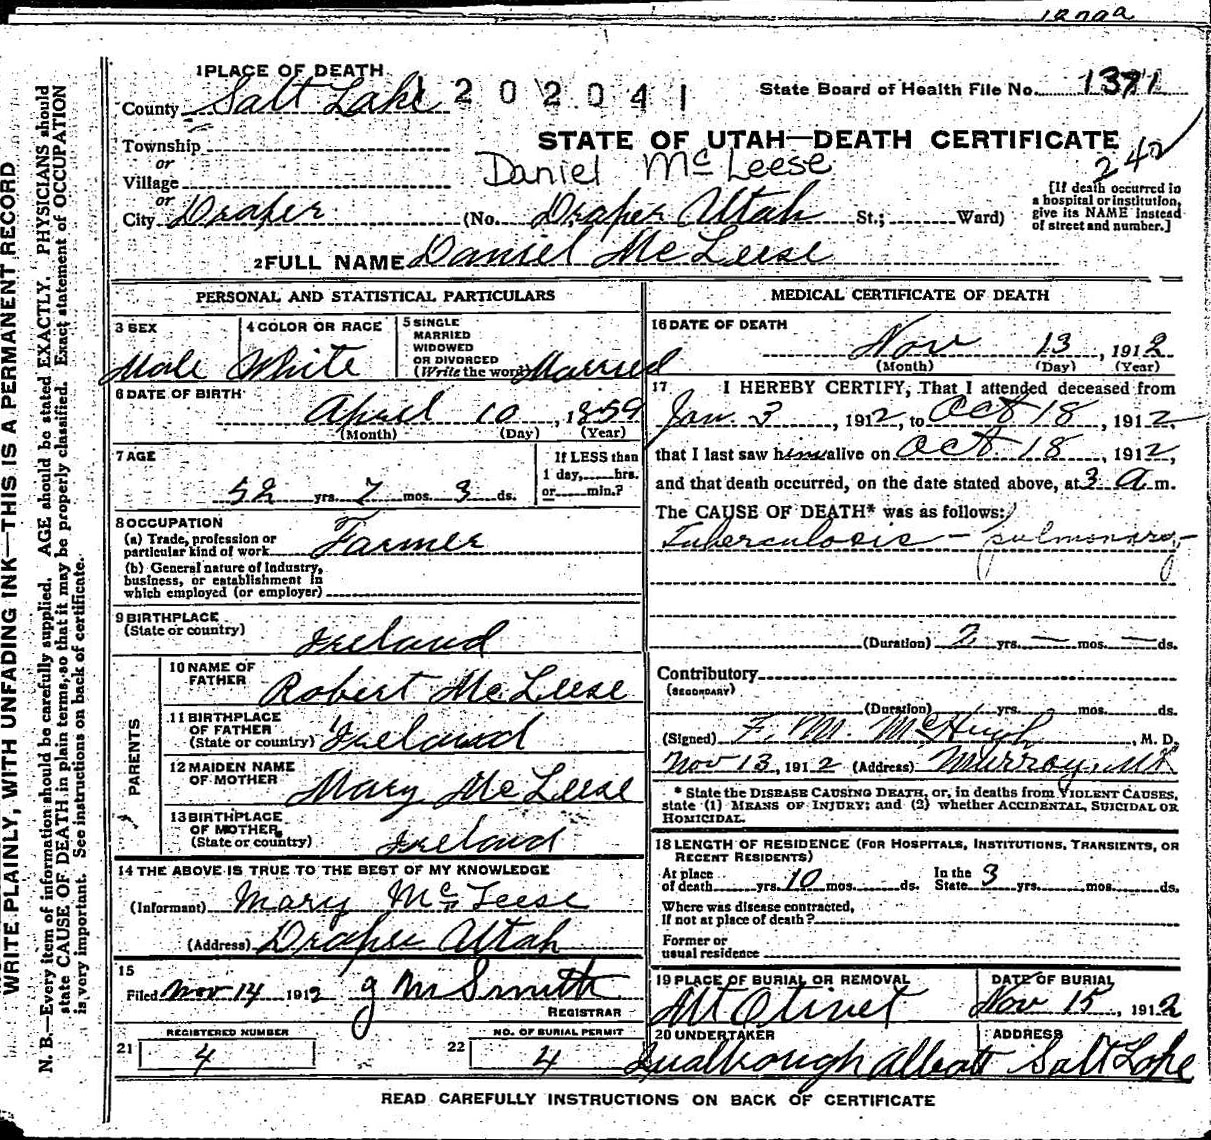 1 PLACE OF DEATH
County Salt Lake 1202041
State Board of Health File No. 1371
STATE OF UTAH—DEATH CERTIFICATE
Township
or
Village
or
Daniel McLeese
242
City Draper (No. Draper Utah St.; Ward)
[If death occurred in
a hospital or institution,
give its NAME instead
of street and number.]
2 FULL NAME Daniel McLeese
PERSONAL AND STATISTICAL PARTICULARS
3 SEX Male
4 COLOR OR RACE White
5 SINGLE
MARRIED
WIDOWED
OR DIVORCED
(Write the word) Married
6 DATE OF BIRTH
April 10, 1859
(Month) (Day) (Year)
7 AGE
52 yrs. 7 mos. 3 ds.
If LESS than
1 day, hrs.
or min.?
8 OCCUPATION
(a) Trade, profession or
particular kind of work Farmer
(b) General nature of industry,
business, or establishment in
which employed (or employer)
9 BIRTHPLACE
(State or country) Ireland
PARENTS
10 NAME OF
FATHER Robert McLeese
11 BIRTHPLACE
OF FATHER
(State or country) Ireland
12 MAIDEN NAME
OF MOTHER Mary McLeese
13 BIRTHPLACE
OF MOTHER
(State or country) Ireland
14 THE ABOVE IS TRUE TO THE BEST OF MY KNOWLEDGE
(Informant) Mary McLeese
(Address) Draper Utah
15
Filed Nov 14 1912 J M Smith
REGISTRAR
REGISTERED NUMBER
21 4
NO. OF BURIAL PERMIT
22 4
MEDICAL CERTIFICATE OF DEATH
16 DATE OF DEATH
Nov 13, 1912
(Month) (Day) (Year)
17 I HEREBY CERTIFY, That I attended deceased from
Jan. 3, 1912, to Oct 18, 1912,
that I last saw him alive on Oct 18, 1912,
and that death occurred, on the date stated above, at 3 A m.
The CAUSE OF DEATH* was as follows:
Tuberculosis - pulmonary,-
(Duration) 2 yrs. — mos. — ds.
Contributory
(SECONDARY)
(Duration) yrs. mos. ds.
(Signed) F. M. McHugh, M. D.
Nov 13, 1912 (Address) Murray, Ut
* State the DISEASE CAUSING DEATH, or, in deaths from VIOLENT CAUSES,
state (1) MEANS OF INJURY; and (2) whether ACCIDENTAL, SUICIDAL OR
HOMICIDAL.
18 LENGTH OF RESIDENCE (FOR HOSPITALS, INSTITUTIONS, TRANSIENTS, OR
RECENT RESIDENTS)
At place
of death yrs. 10 mos. ds.
In the
State 3 yrs. mos. ds.
Where was disease contracted,
if not at place of death?
Former or
usual residence
19 PLACE OF BURIAL OR REMOVAL
Mt Olivet
DATE OF BURIAL
Nov 15, 1912
20 UNDERTAKER
ADDRESS
Salt Lake
READ CAREFULLY INSTRUCTIONS ON BACK OF CERTIFICATE
WRITE PLAINLY, WITH UNFADING INK—THIS IS A PERMANENT RECORD
N. B.—Every item of information should be carefully supplied. AGE should be stated EXACTLY. PHYSICIANS should
state CAUSE OF DEATH in plain terms, so that it may be properly classified. Exact statement of OCCUPATION
is very important. See instructions on back of certificate.